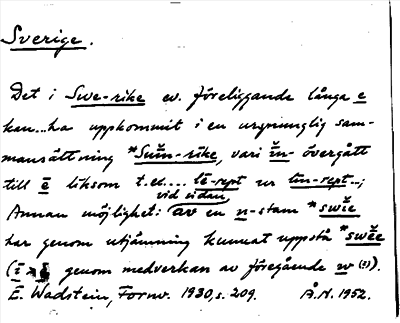 Sverige.
Det i Swe-rike ev. föreliggande långa e
kan...ha uppkommit i en ursprunglig sam-
mansättning *Swīn-rīke, vari īn- övergått
till ē liksom t.ex.... lē-rept ur līn-rept...;
vid sidan
Annan möjlighet: av en n-stam *swīe
har genom utjämning kunnat uppstå *swēe
(ī > ē genom medverkan av föregående w (?)).
E. Wadstein, Fornv. 1930, s. 209. Å.N. 1952.